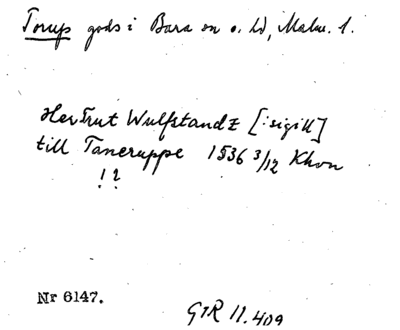 Torup gods i Bara sn o. hd, Malm. l.
Hertrut Wulfstandz [: sigill]
till Taneruppe 1536 3/12 Khvn
! ?
Nr 6147.
GIR 11.409